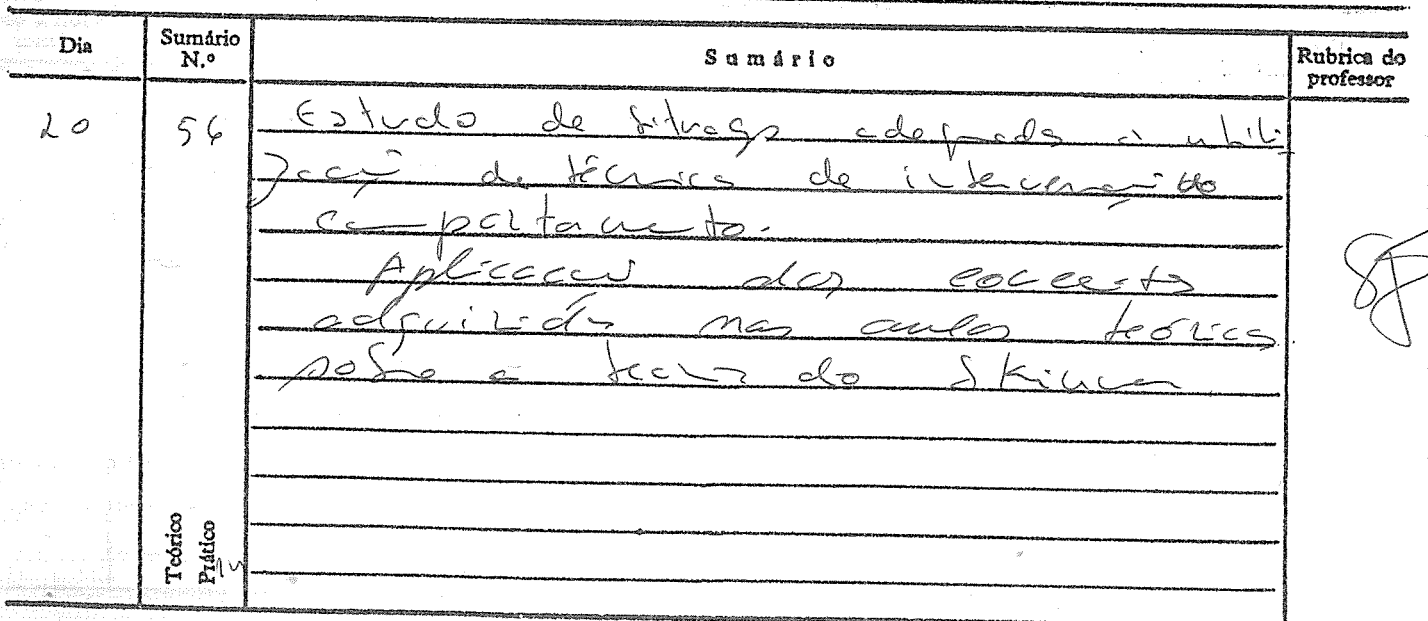 Dia Sumário N.º Sumário Rubrica do professor
20 56 Estudo de situação adequada à utili-
zação de técnica de intervenção no
comportamento.
Aplicação dos conceitos
adquiridos nas aulas teóricas
sobre a teoria do Skinner
Teórico
Prático